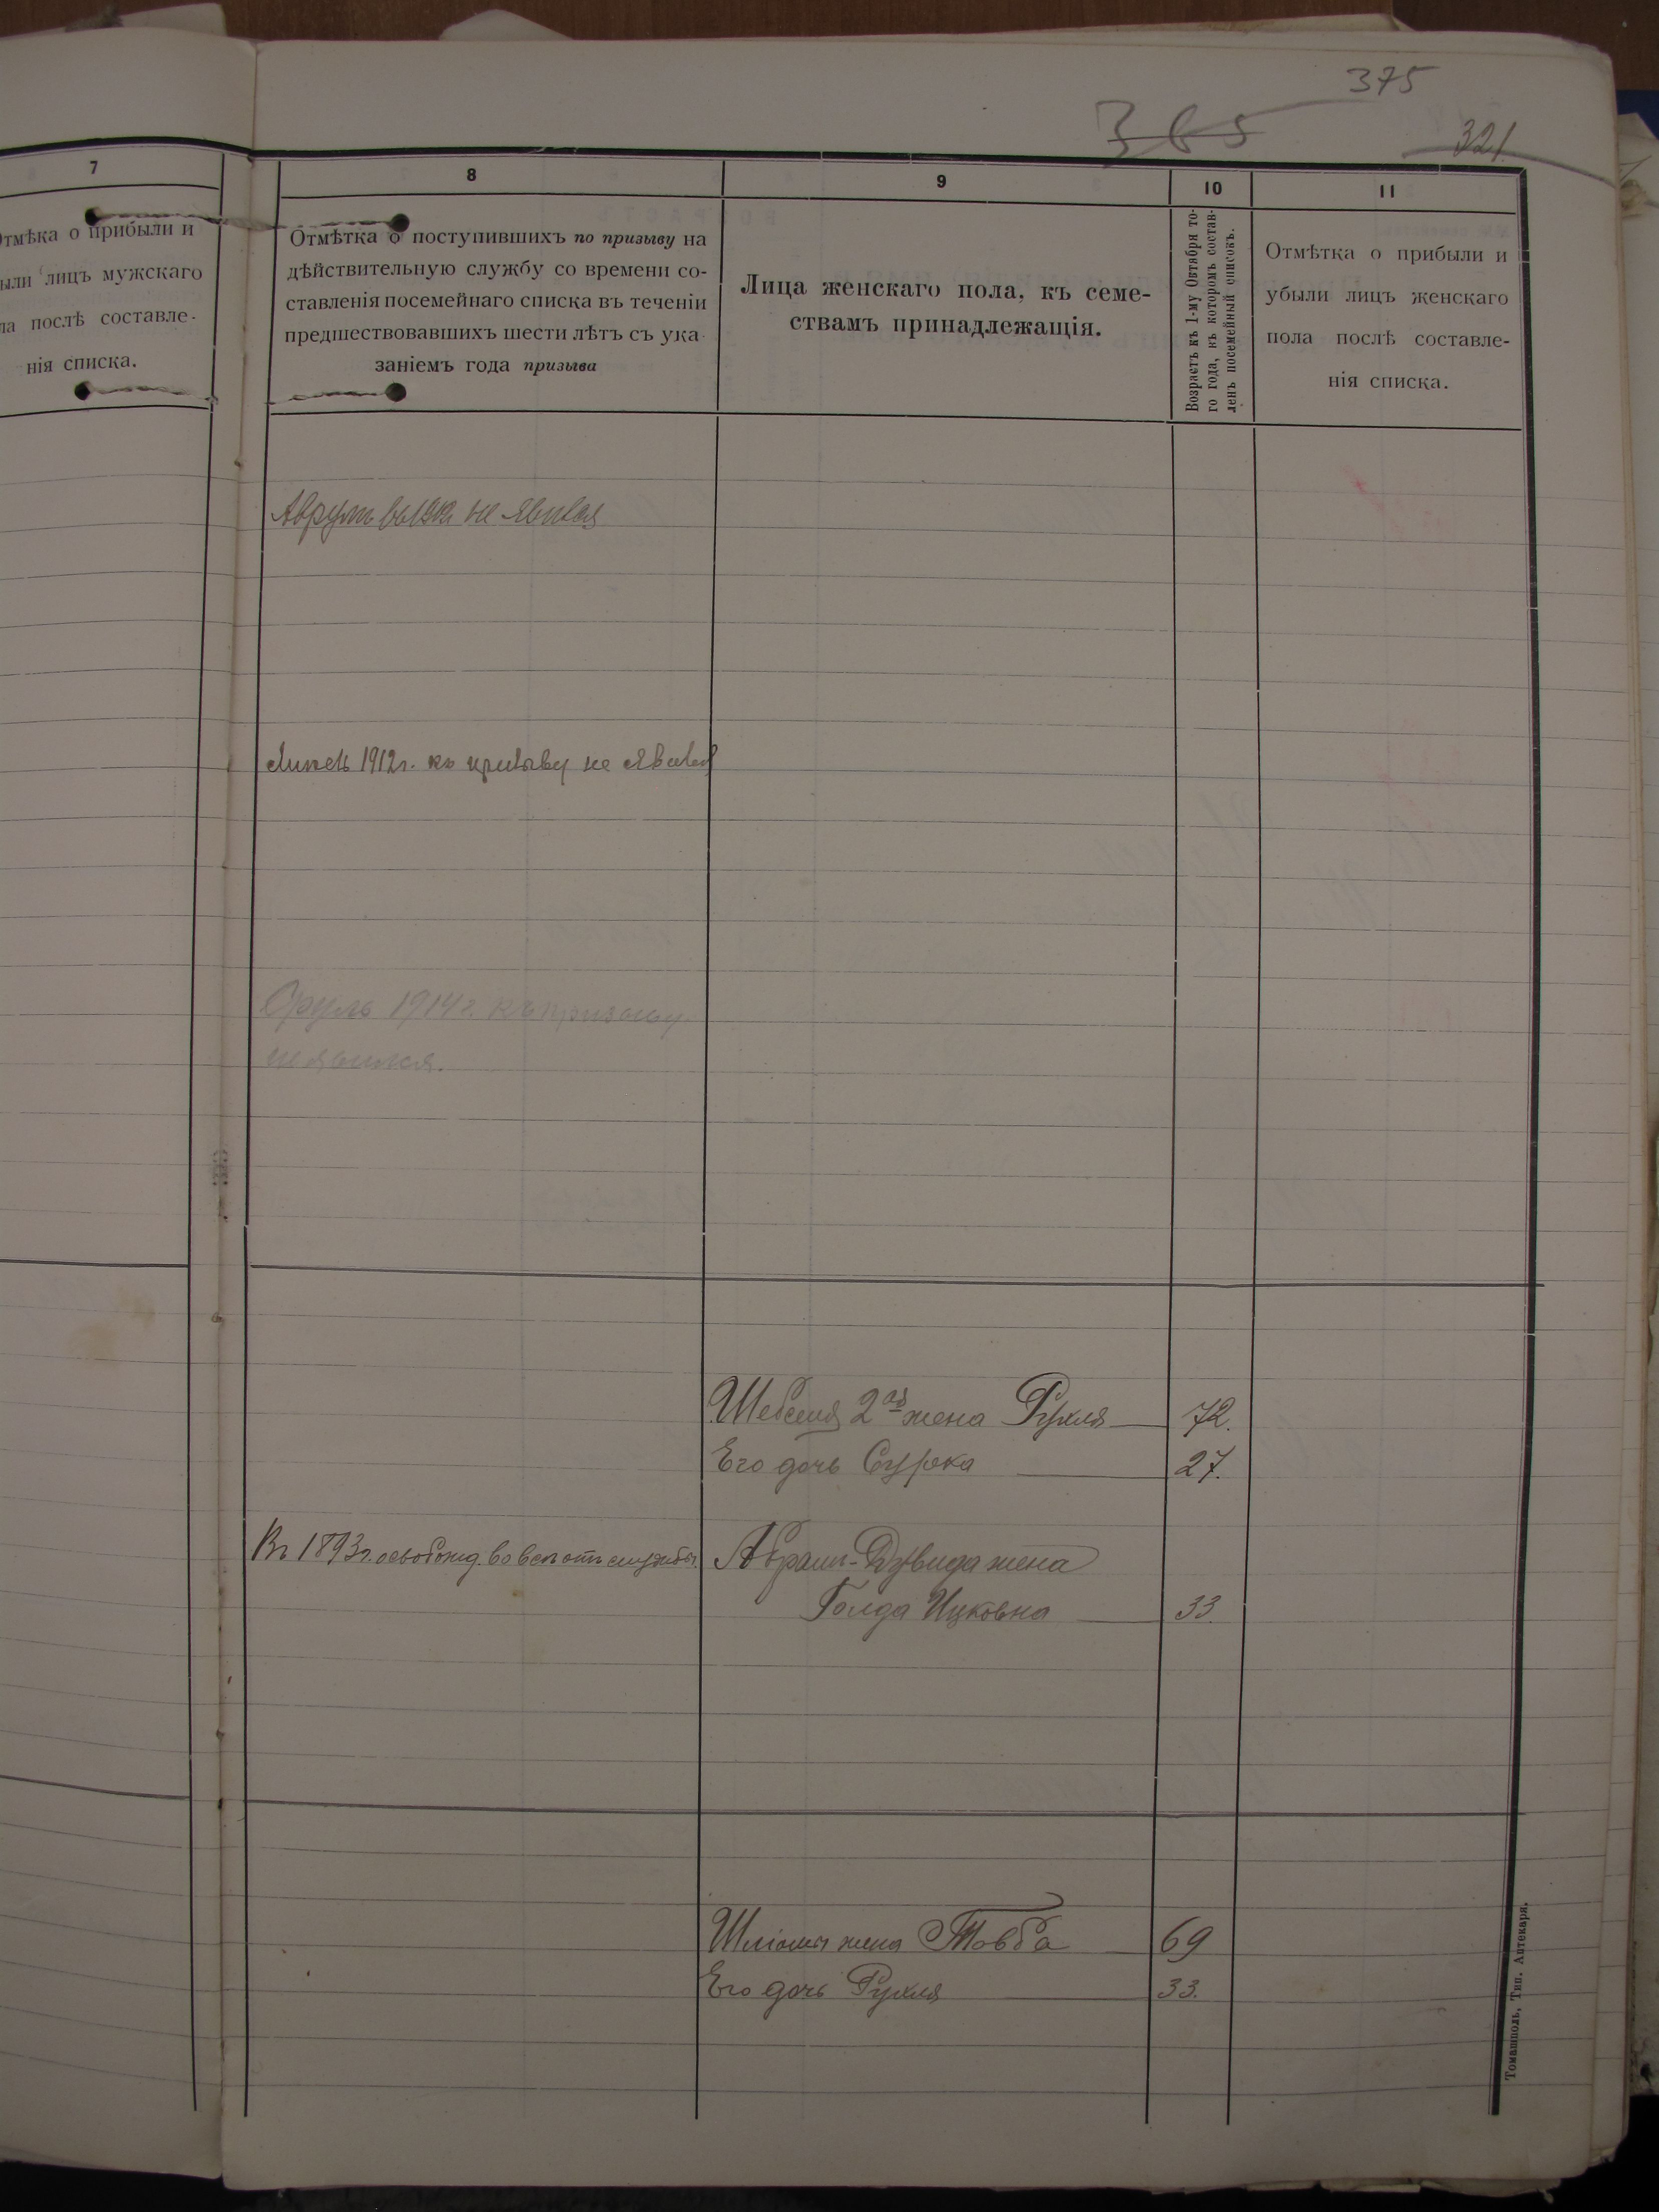 375
365
321
7
8
9
10
11
Отмѣка о прибыли и
были лицъ мужскаго
ла послѣ составле-
нія списка.
Отмѣтка о поступившихъ по призыву на
дѣйствительную службу со времени со-
ставленія посемейнаго списка въ теченіи
предшествовавшихъ шести лѣтъ съ ука-
заніемъ года призыва
Лица женскаго пола, къ семе-
ствамъ принадлежащія.
Возрастъ къ 1-му Октября то-
го года, къ которомъ состав-
ленъ посемейный список.
Отмѣтка о прибыли и
убыли лицъ женскаго
пола послѣ составле-
нія списка.
Аврумъ не явился
1912г. къ призыву не явился
Сруль 1914г. къ призыву
не явился.
Шебселя 2ая жена Рухля 72.
Его дочь Сурка 27.
Въ 1893г. освобожд. вовсе отъ службы.
Абрамъ-Дувида жена
Голда Ицковна 33
Шліомы жена Товба 69
Его дочь Рухля 33.
Томашполь, Тип. Аптекаря.